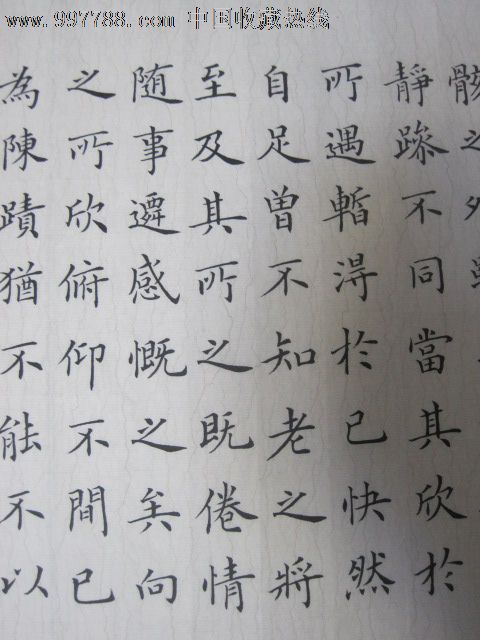 www.997788.com 中国收藏热线
骸之外雖
靜躁不同當其欣於
所遇暫得於己快然
自足曾不知老之將
至及其所之既倦情
随事遷感慨之矣向
之所欣俯仰不間已
為陳蹟猶不能不以